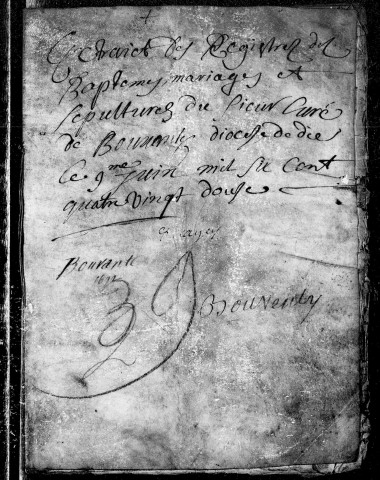 Extraict des Registres des
Baptemes mariages et
sepultures du sieur Curé
de Bouvante diocese de die
le 9me Juin mil six cent
quatre vingt douse
Bouvante
1692